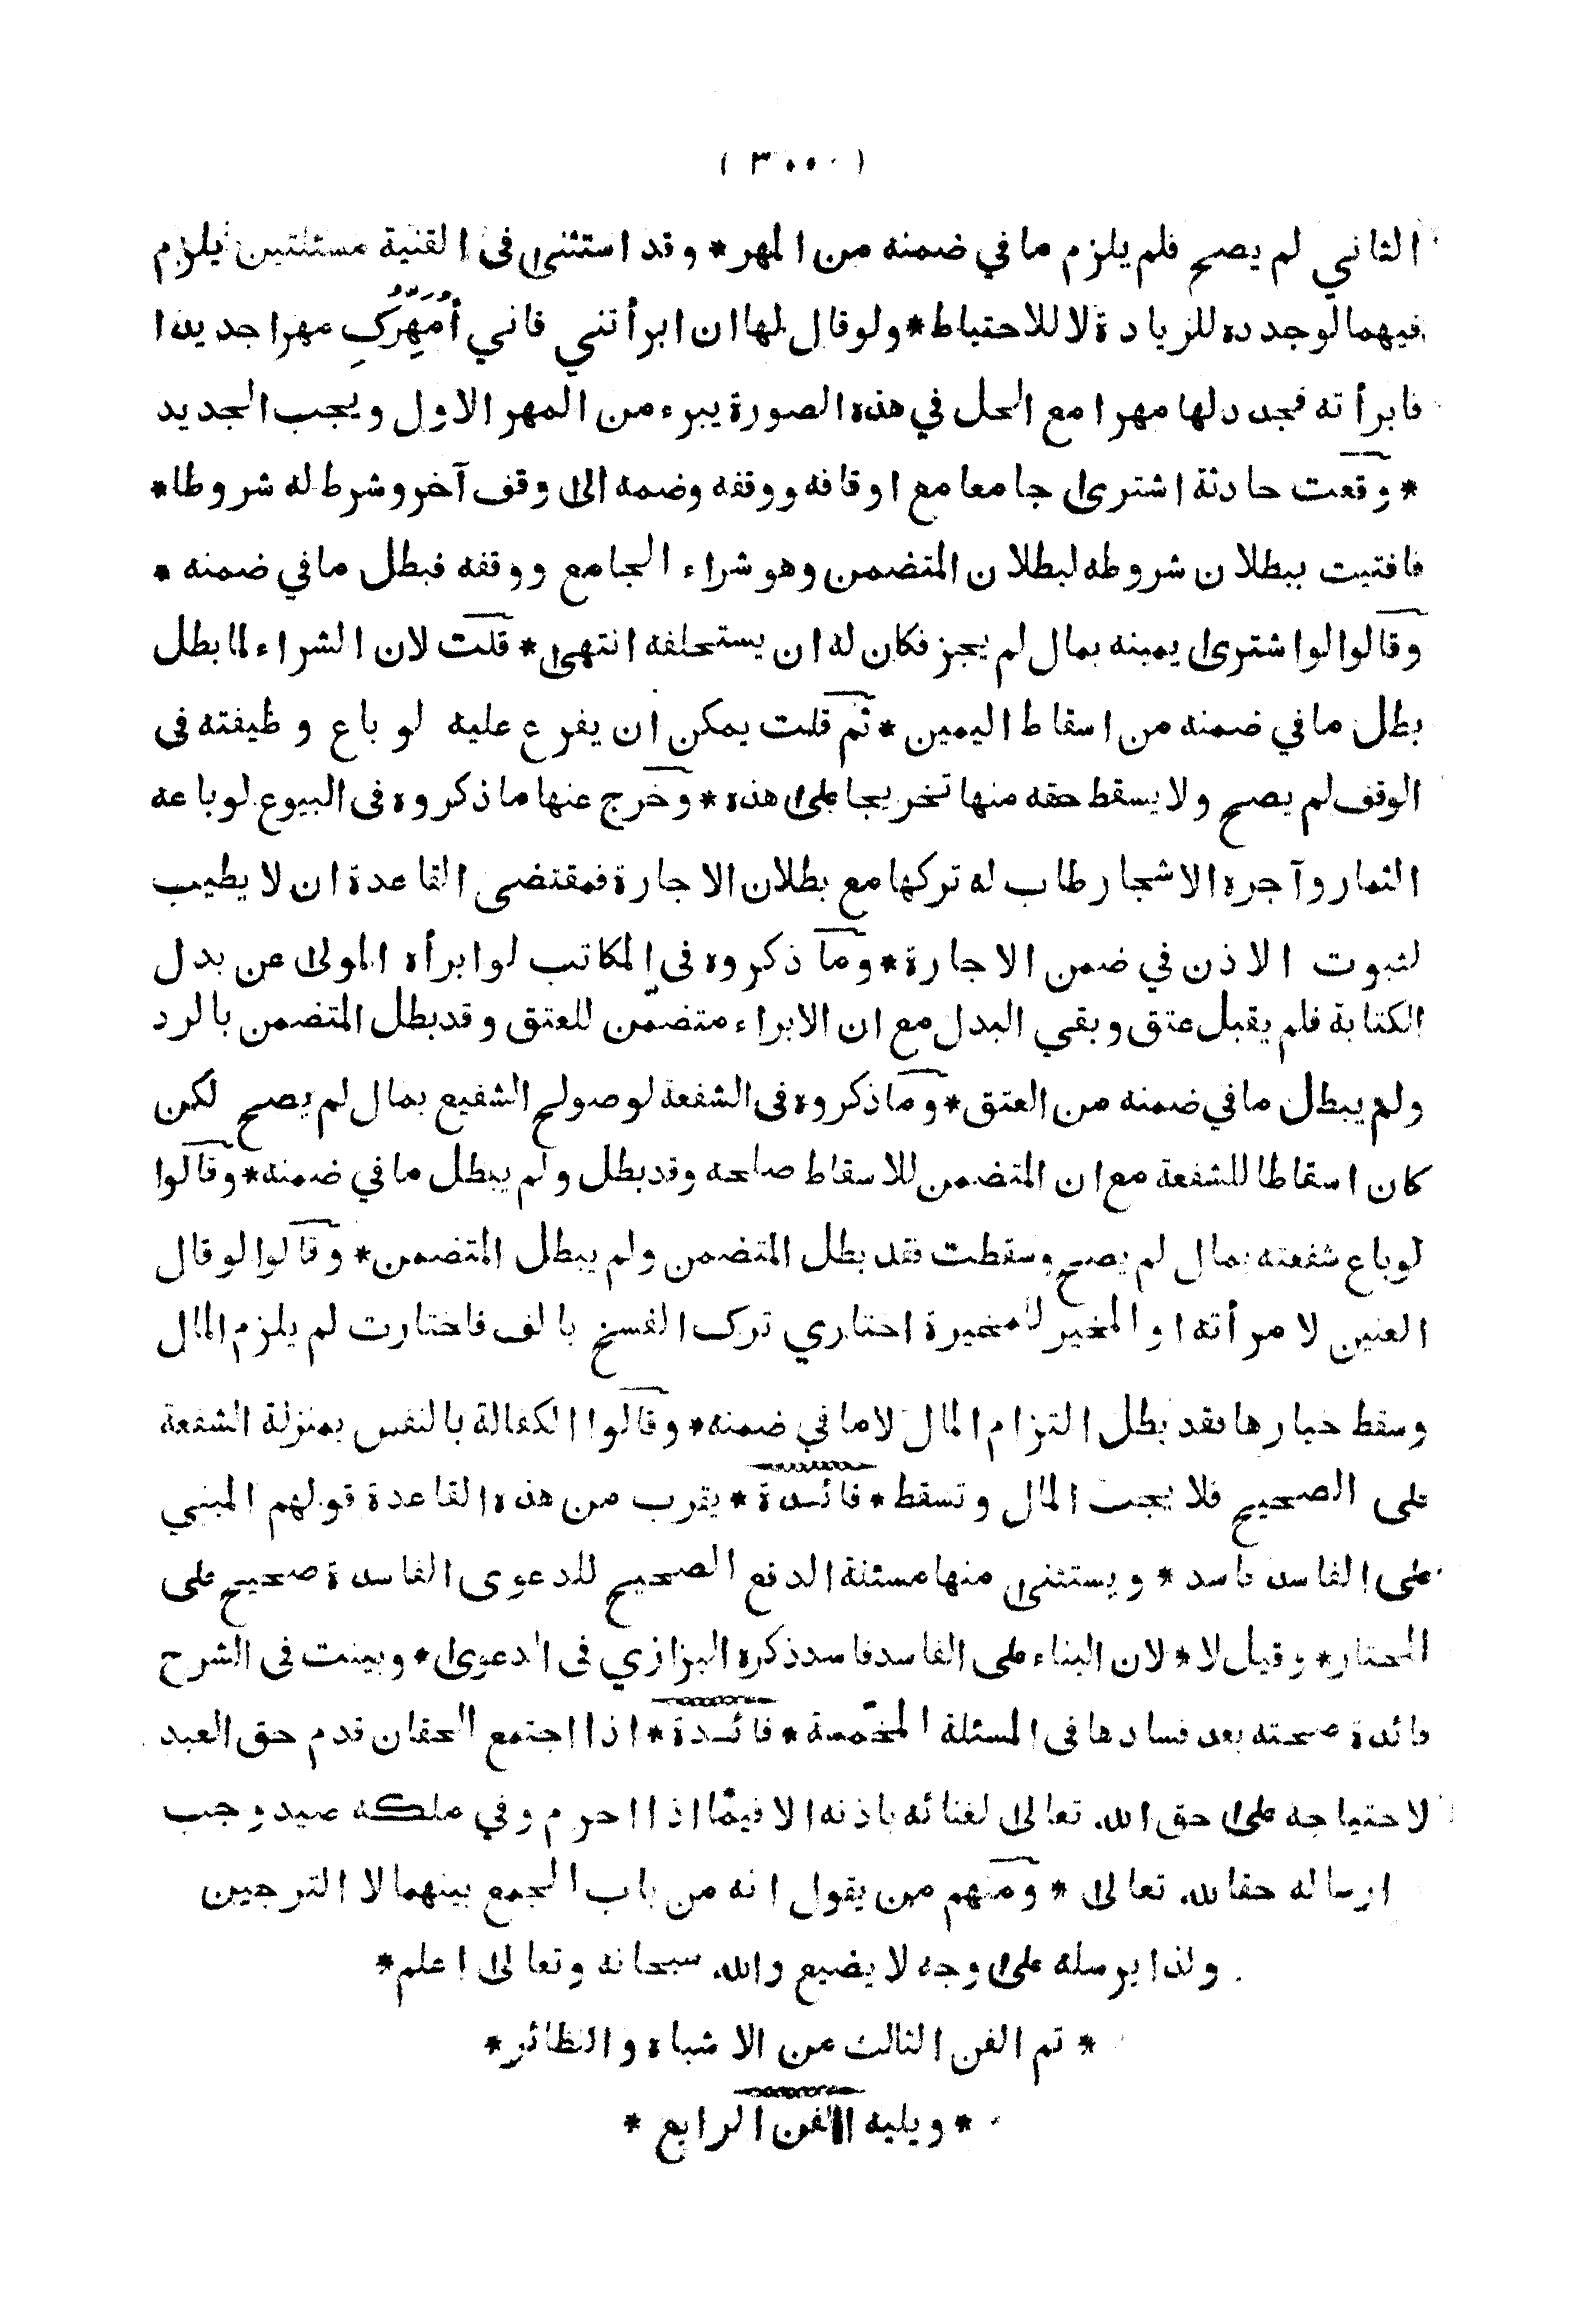 ( ٣٠٠ )
الثاني لم يصح فلم يلزم ما في ضمنه من المهر* وقد استثنى فى القنية مسئلتين يلزم
فيهما لو جدده للزيادة لا للاحتياط* ولو قال لها ان ابرأتني فاني أُمَهِّرُكِ مهرا جديدا
فابرأته فجدد لها مهرا مع الحل في هذه الصورة يبرء من المهر الاول ويجب الجديد
* وقعت حادثة اشترى جامعا مع اوقافه ووقفه وضمه الى وقف آخر وشرط له شروطا*
فافتيت ببطلان شروطه لبطلان المتضمن وهو شراء الجامع ووقفه فبطل ما في ضمنه *
وقالوا لو اشترى يمينه بمال لم يجز فكان له ان يستحلفه انتهى* قلت لان الشراء لما بطل
بطل ما في ضمنه من اسقاط اليمين * ثم قلت يمكن ان يفرع عليه لو باع وظيفته فى
الوقف لم يصح ولا يسقط حقه منها تخريجا على هذه* وخرج عنها ما ذكروه فى البيوع لو باعه
الثمار وآجره الاشجار طاب له تركها مع بطلان الاجارة فمقتضى القاعدة ان لا يطيب
لثبوت الاذن في ضمن الاجارة* وما ذكروه فى المكاتب لو ابرأه المولى عن بدل
الكتابة فلم يقبل عتق وبقي البدل مع ان الابراء متضمّن للعتق وقد بطل المتضمن بالرد
ولم يبطل ما في ضمنه من العتق* وما ذكروه فى الشفعة لو صولح الشفيع بمال لم يصح لكن
كان اسقاطا للشفعة مع ان المتضمن للاسقاط صلحه وقد بطل ولم يبطل ما في ضمنه* وقالوا
لو باع شفعته بمال لم يصح وسقطت فقد بطل المتضمن ولم يبطل المتضمن* وقالوا لو قال
العنين لامرأته او المخير للمخيرة اختاري ترك الفسخ بالف فاختارت لم يلزم المال
وسقط خيارها فقد بطل التزام المال لا ما في ضمنه* وقالوا الكفالة بالنفس بمنزلة الشفعة
على الصحيح فلا يجب المال وتسقط* فائدة * يقرب من هذه القاعدة قولهم المبني
على الفاسد فاسد * ويستثنى منها مسئلة الدفع الصحيح للدعوى الفاسدة صحيح على
المختار* وقيل لا* لان البناء على الفاسد فاسد ذكره البزازي فى الدعوى* وبينت فى الشرح
فائدة صحته بعد فسادها فى المسئلة المخمّسة * فائدة* اذا اجتمع الحقان قدم حق العبد
لاحتياجه على حق الله تعالى لغنائه باذنه الا فيمّا اذا احرم وفي ملكه صيد وجب
ارساله حقا لله تعالى * ومنهم من يقول انه من باب الجمع بينهما لا الترجيح
ولذا يرسله على وجه لا يضيع والله سبحانه وتعالى اعلم*
* تم الفن الثالث من الاشباه والنظائر*
* ويليه الفن الرابع *